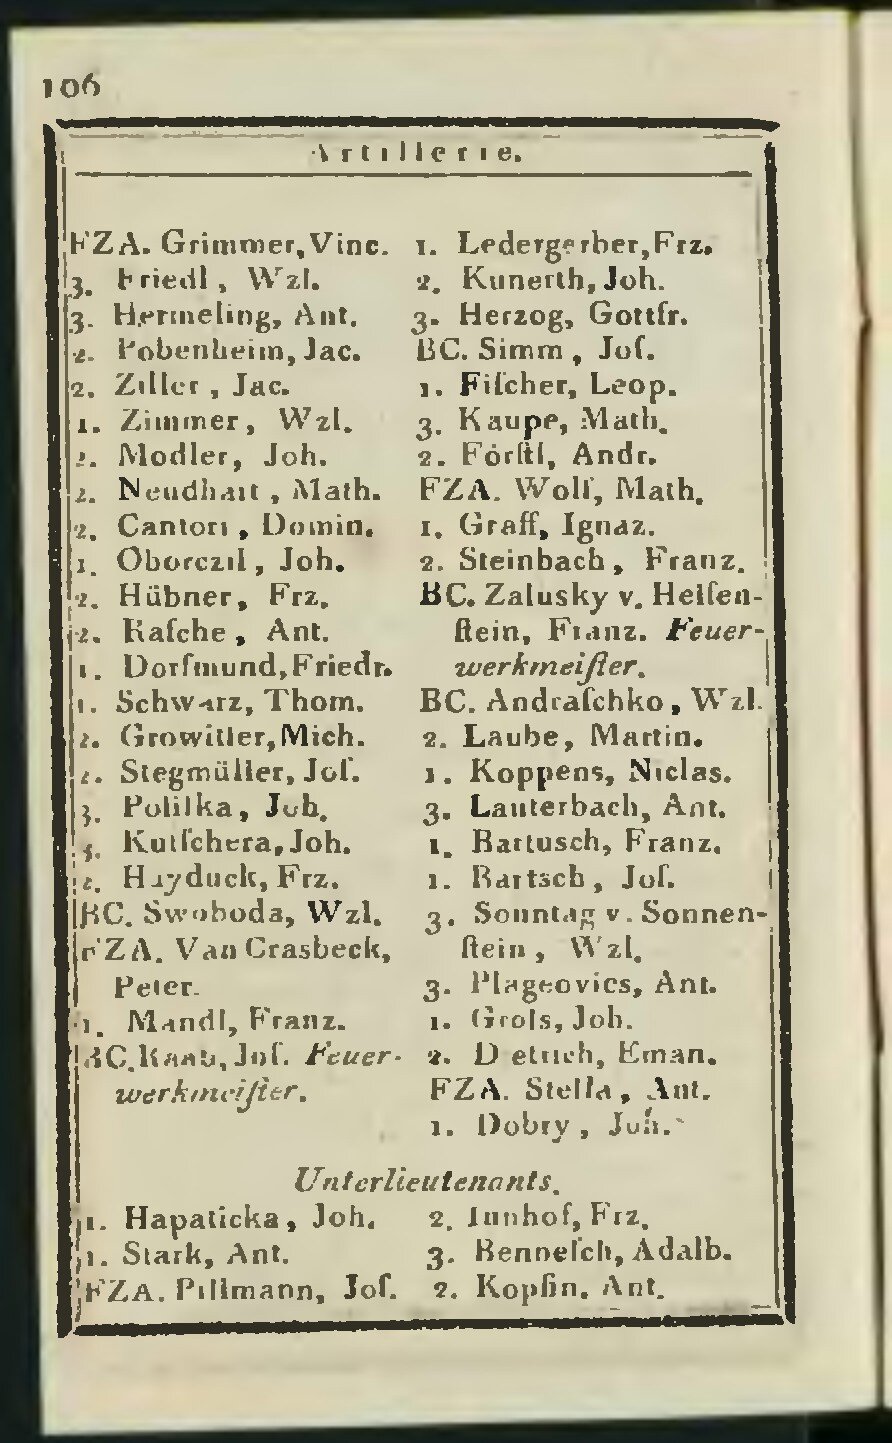 106
Artillerie.
FZA. Grimmer, Vinc.
3. Friedl, Wzl.
3. Hermeling, Ant.
2. Pobenheim, Jac.
2. Ziller, Jac.
1. Zimmer, Wzl.
2. Modler, Joh.
2. Neudhart, Math.
2. Cantori, Domin.
1. Oborczil, Joh.
2. Hübner, Frz.
2. Raſche, Ant.
1. Dorfmund, Friedr.
1. Schwarz, Thom.
2. Growitler, Mich.
2. Stegmüller, Joſ.
3. Poliſka, Joh.
Kutſchera, Joh.
2. Hayduck, Frz.
BC. Swoboda, Wzl.
FZA. Van Crasbeck,
Peter.
1. Mandl, Franz.
BC. Raab, Joſ. Feuer-
werkmeiſter.
1. Ledergerber, Frz.
2. Kunerth, Joh.
3. Herzog, Gottfr.
BC. Simm, Joſ.
1. Fiſcher, Leop.
3. Kaupe, Math.
2. Förſtl, Andr.
FZA. Wolf, Math.
1. Graff, Ignaz.
2. Steinbach, Franz.
BC. Zalusky v. Helfen-
ſtein, Franz. Feuer-
werkmeiſter.
BC. Andraſchko, Wzl.
2. Laube, Martin.
1. Koppens, Niclas.
3. Lauterbach, Ant.
1. Bartusch, Franz.
1. Bartsch, Joſ.
3. Sonntag v. Sonnen-
ſtein, Wzl.
3. Plageovics, Ant.
1. Groſs, Joh.
2. Dietrich, Eman.
FZA. Stella, Ant.
1. Dobry, Joh.
Unterlieutenants.
1. Hapaticka, Joh.
1. Stark, Ant.
FZA. Pillmann, Joſ.
2. Innhof, Frz.
3. Benneſch, Adalb.
2. Kopfin. Ant.